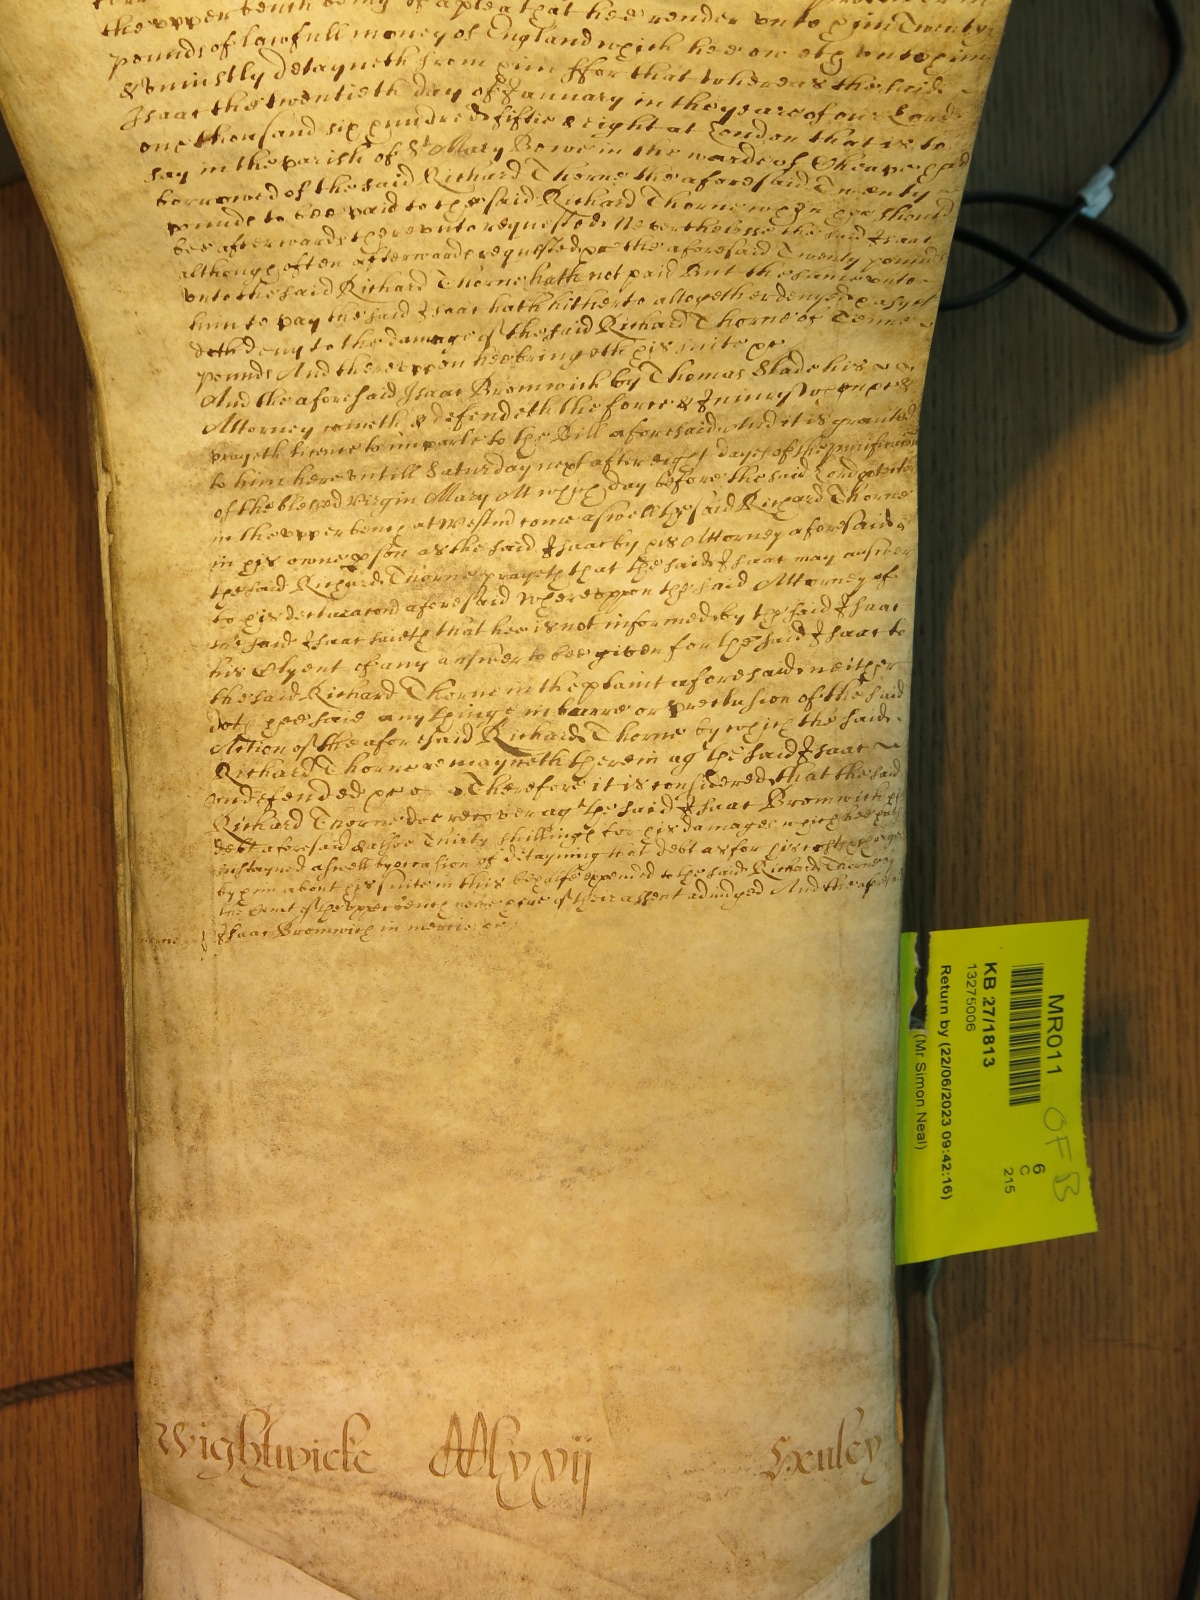 the upper bench being of a plea that hee render unto him Twenty
pounds of lawfull money of England which hee oweth unto him
& uniustly detayneth from him ffor that whereas the said
Isaac the twentieth day of January in the yeare of our Lord
one thousand six hundred fiftie & eight at London that is to
say in the parish of St Mary Bowe in the warde of Cheape had
borrowed of the said Richard Thorne the aforesaid Twenty
pounds to bee paid to the said Richard Thorne when hee should
bee afterwards thereunto requested Neverthelesse the said Isaac
although often afterwards requested &c the aforesaid Twenty pounds
unto the said Richard Thorne hath not paid But the same unto
him to pay the said Isaac hath hitherto altogether denyed & as yet
doth deny to the damage of the said Richard Thorne of Tenne
pounds And thereuppon hee bringeth his suite &c
And the aforesaid Isaac Bromwich by Thomas Slade his
Attorney cometh & defendeth the force & Iniury when &c &
prayeth licence to imparle to the Bill aforesaid And it is graunted
to him here untill Saturday next after eight dayes of the purificacon
of the blessed Virgin Mary At which day before the said Lord protector
in the upper bench at Westmr come aswell the said Richard Thorne
in his owne pson as the said Isaac by his Attorney aforesaid &
the said Richard Thorne prayeth that the said Isaac may answer
to his declaracon aforesaid Whereuppon the said Attorney of
the said Isaac saieth that hee is not informed by the said Isaac
his Clyent of any answer to bee given for the said Isaac to
the said Richard Thorne in the plaint aforesaid neither
doth hee saie any thinge in barre or preclusion of the said
Action of the aforesaid Richard Thorne by which the said
Richard Thorne remayneth therein agt the said Isaac
undefended &c Therefore it is considered that the said
Richard Thorne doe recover agt the said Isaac Bromwich his
debt aforesaid & alsoe Thirty shillings for his damages which hee hath
sustayned aswell by occasion of detayning that debt as for his costs & charges
by him about his suite in this behalfe expended to the said Richard Thorne by
the Court of the upper bench here of his assent adiudged And the aforesaid
Isaac Bromwich in mercie &c
Wightwicke Mlxxvij Henley
MR011
OFB
KB 27/1813
13275006
Return by (22/06/2023 09:42:16)
(Mr Simon Neal)
6
C
215